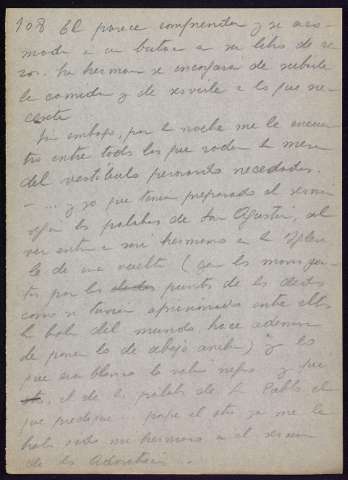 108 El parece comprender y se aco-
moda a un butaca a su libro de re-
zos. Su hermana se encargará de subirle
la comida y de servirle a lo que ne-
cesite
Sin embargo, por la noche me le encuen-
tro entre todos los que rodean la mesa
del vestíbulo pensando necedades.
— ... y yo que tenía preparado el sermón
según las palabras de San Agustín, al
ver entrar a mi hermana en la Iglesia
le da una vuelta (y las manos jun-
tas por las puntas de los dedos
como si tuviera aprisionada entre ellas
la bola del mundo hace ademán
de poner lo de abajo arriba) y lo
que era blanco lo volví negro y que
el de la palabra de S. Pablo el
que predique ... porque el otro ya me lo
había oído mi hermana en el sermón
de las Adoratrices.